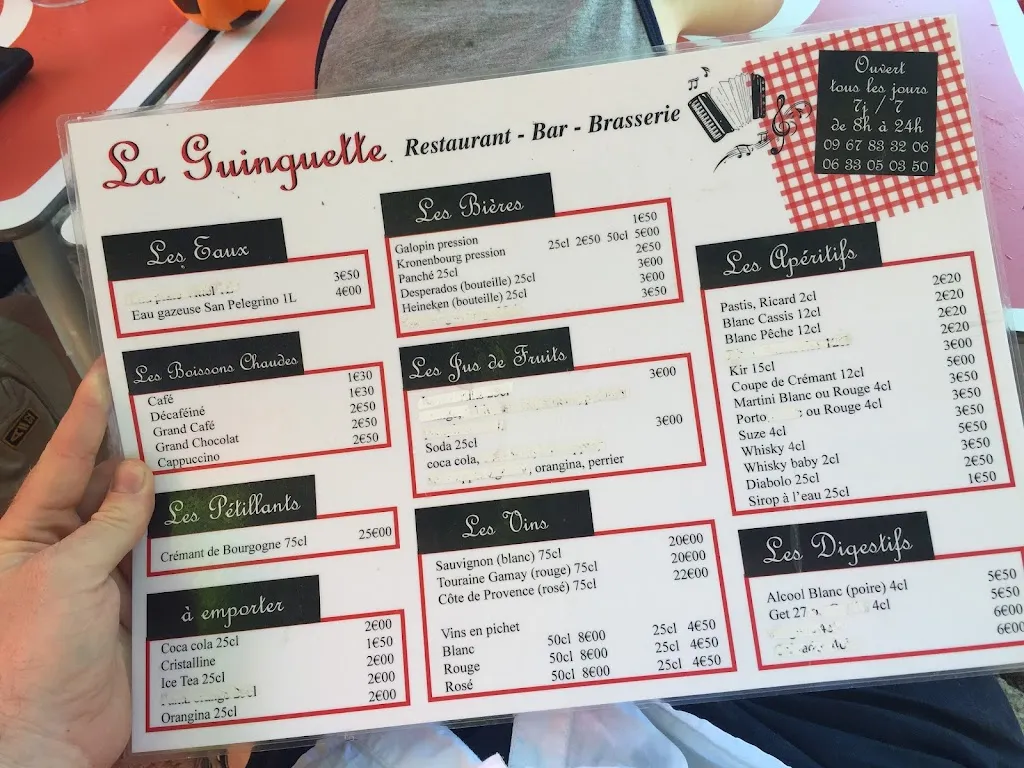 La Guinguette
Restaurant - Bar - Brasserie
Ouvert
tous les jours
7j / 7
de 8h à 24h
09 67 83 32 06
06 33 05 03 50
Les Eaux
3€50
Eau gazeuse San Pelegrino 1L 4€00
Les Boissons Chaudes
Café 1€30
Décaféiné 1€30
Grand Café 2€50
Grand Chocolat 2€50
Cappuccino 2€50
Les Pétillants
Crémant de Bourgogne 75cl 25€00
à emporter
Coca cola 25cl 2€00
Cristalline 1€50
Ice Tea 25cl 2€00
2€00
Orangina 25cl 2€00
Les Bières
Galopin pression 1€50
Kronenbourg pression 25cl 2€50 50cl 5€00
Panché 25cl 2€50
Desperados (bouteille) 25cl 3€00
Heineken (bouteille) 25cl 3€00
3€50
Les Jus de Fruits
3€00
Soda 25cl 3€00
coca cola,
, orangina, perrier
Les Vins
Sauvignon (blanc) 75cl 20€00
Touraine Gamay (rouge) 75cl 20€00
Côte de Provence (rosé) 75cl 22€00
Vins en pichet
Blanc 50cl 8€00 25cl 4€50
Rouge 50cl 8€00 25cl 4€50
Rosé 50cl 8€00 25cl 4€50
Les Apéritifs
Pastis, Ricard 2cl 2€20
Blanc Cassis 12cl 2€20
Blanc Pêche 12cl 2€20
2€20
Kir 15cl 3€00
Coupe de Crémant 12cl 5€00
Martini Blanc ou Rouge 4cl 3€50
Porto ou Rouge 4cl 3€50
Suze 4cl 3€50
Whisky 4cl 5€50
Whisky baby 2cl 3€50
Diabolo 25cl 2€50
Sirop à l'eau 25cl 1€50
Les Digestifs
Alcool Blanc (poire) 4cl 5€50
Get 27 4cl 5€50
6€00
6€00